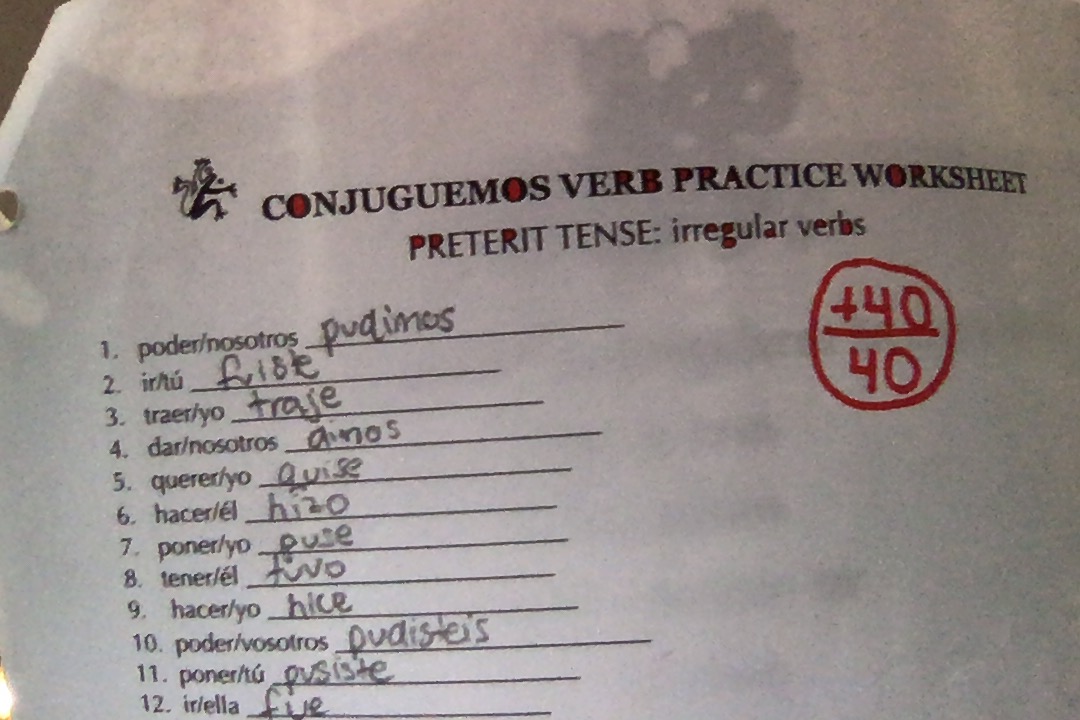 CONJUGUEMOS VERB PRACTICE WORKSHEET
PRETERIT TENSE: irregular verbs
+40
40
1. poder/nosotros pudimos
2. ir/tú fuiste
3. traer/yo traje
4. dar/nosotros dimos
5. querer/yo quise
6. hacer/él hizo
7. poner/yo puse
8. tener/él tuvo
9. hacer/yo hice
10. poder/vosotros pudisteis
11. poner/tú pusiste
12. ir/ella fue